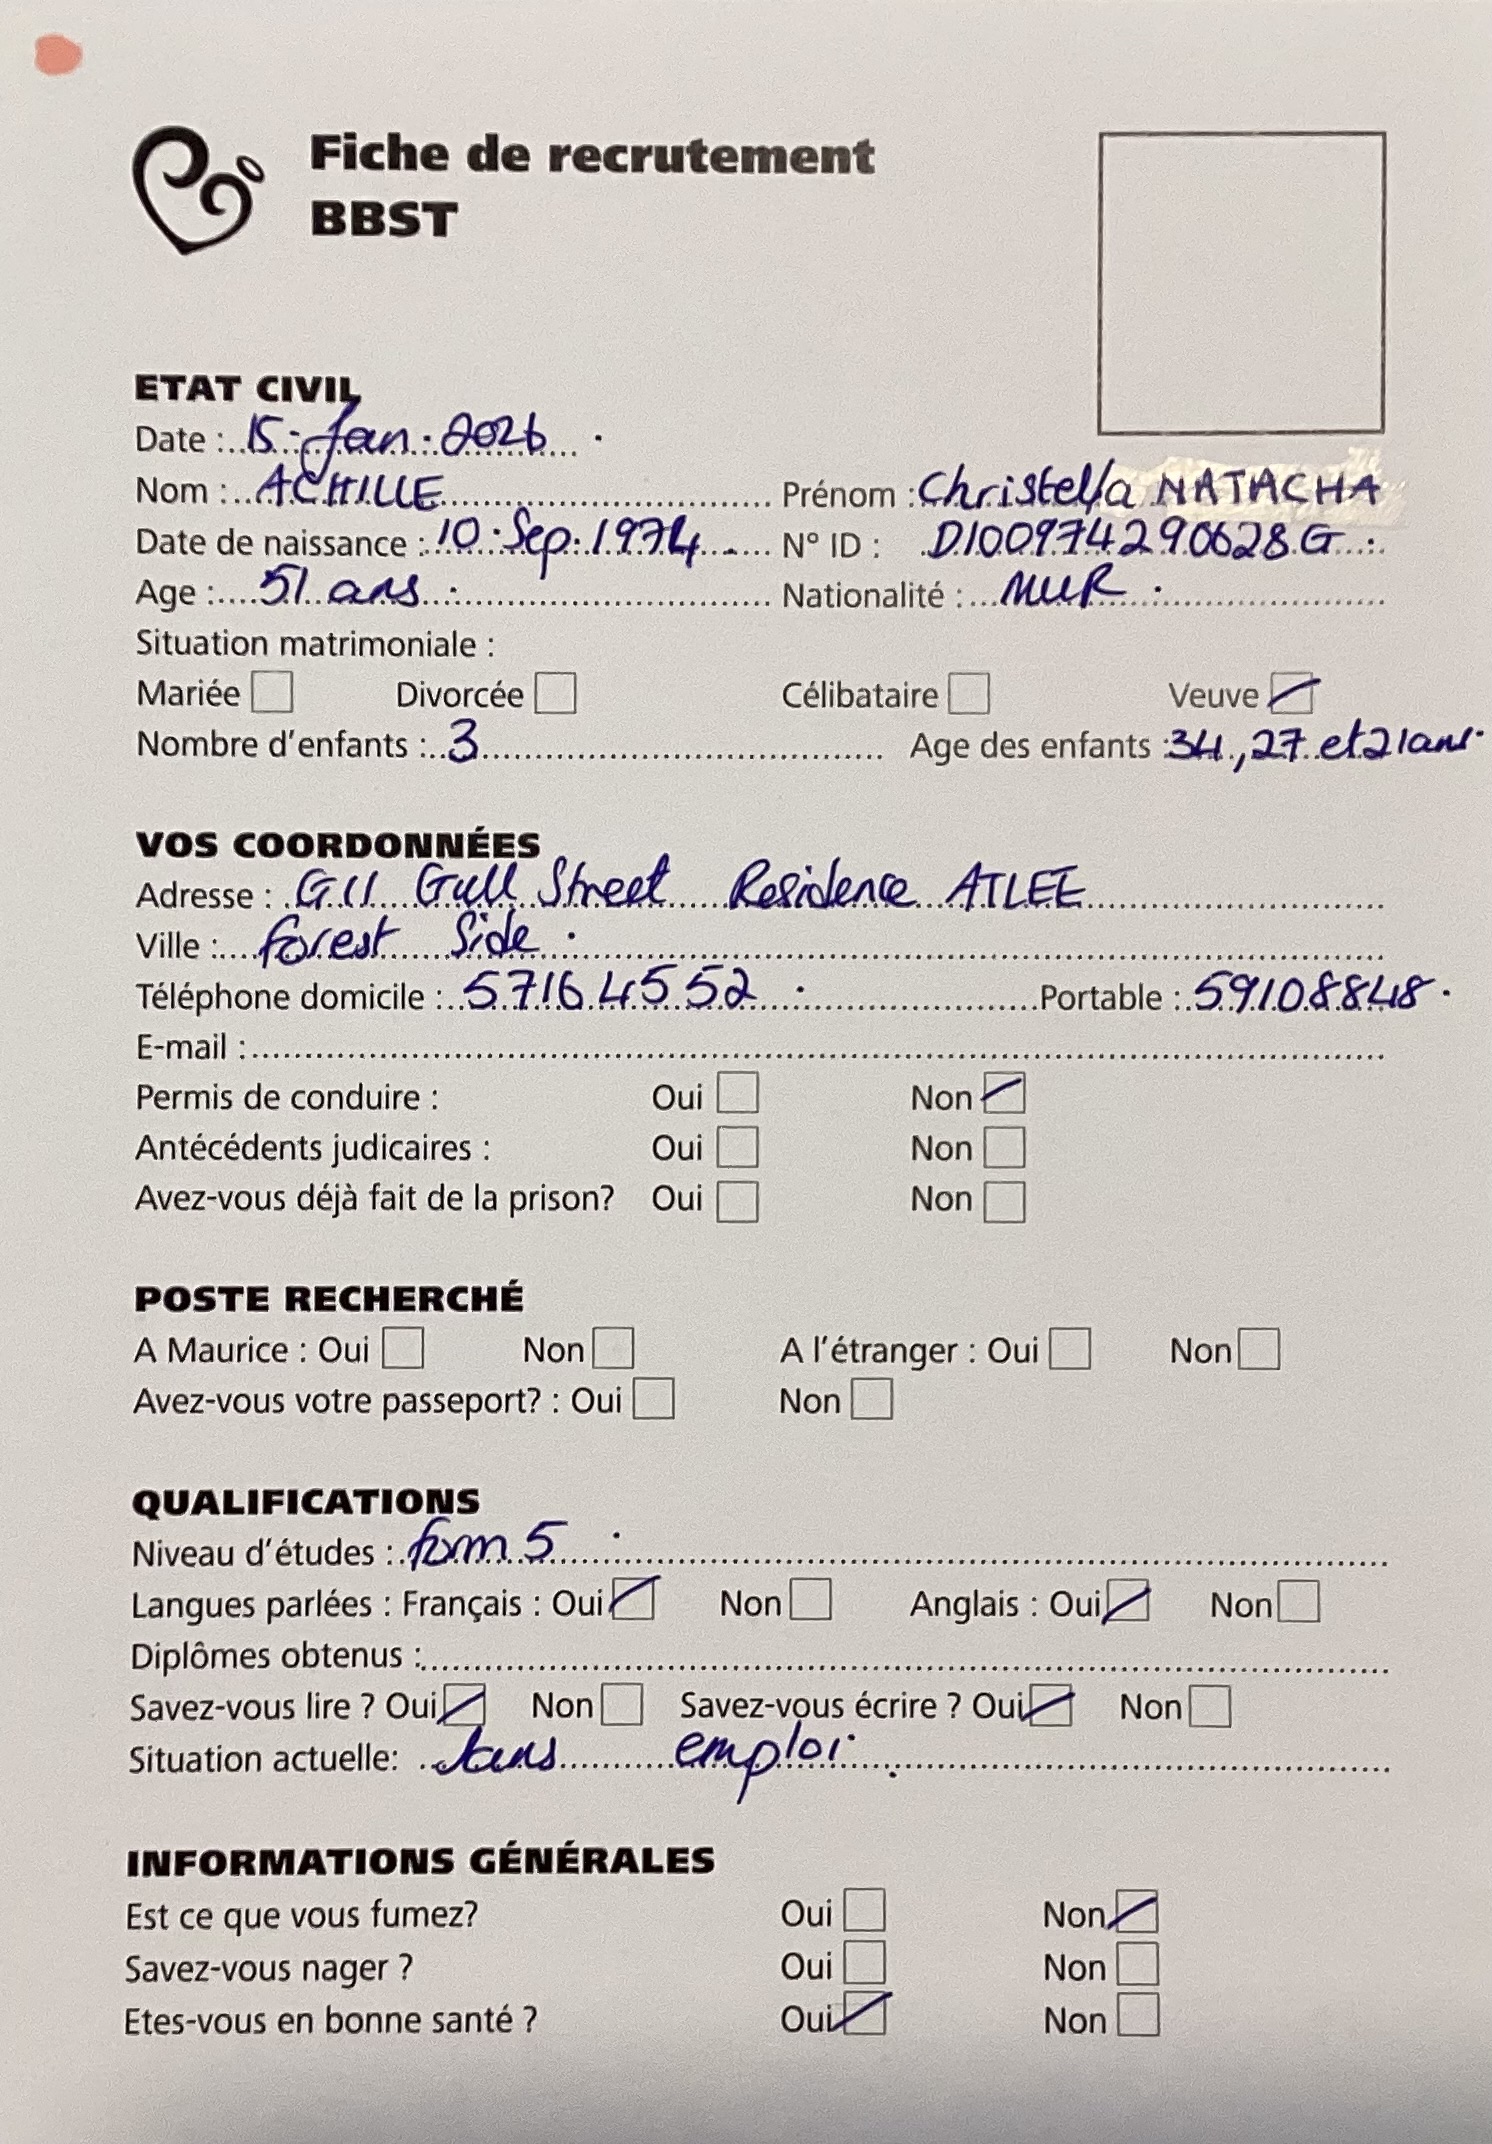 Fiche de recrutement
BBST
ETAT CIVIL
Date : 15 Jan. 2026
Nom : ACHILLE Prénom : Christella NATACHA
Date de naissance : 10 Sep. 1974 N° ID : D100974290628G
Age : 51 ans Nationalité : MUR
Situation matrimoniale :
Mariée Divorcée Célibataire Veuve
Nombre d'enfants : 3 Age des enfants : 34, 27 et 21 ans
VOS COORDONNÉES
Adresse : G11 Gull Street Residence ATLEE
Ville : forest Side
Téléphone domicile : 57164552 Portable : 59108848
E-mail :
Permis de conduire : Oui Non
Antécédents judicaires : Oui Non
Avez-vous déjà fait de la prison? Oui Non
POSTE RECHERCHÉ
A Maurice : Oui Non A l'étranger : Oui Non
Avez-vous votre passeport? : Oui Non
QUALIFICATIONS
Niveau d'études : form 5
Langues parlées : Français : Oui Non Anglais : Oui Non
Diplômes obtenus :
Savez-vous lire ? Oui Non Savez-vous écrire ? Oui Non
Situation actuelle: Sans emploi
INFORMATIONS GÉNÉRALES
Est ce que vous fumez? Oui Non
Savez-vous nager ? Oui Non
Etes-vous en bonne santé ? Oui Non